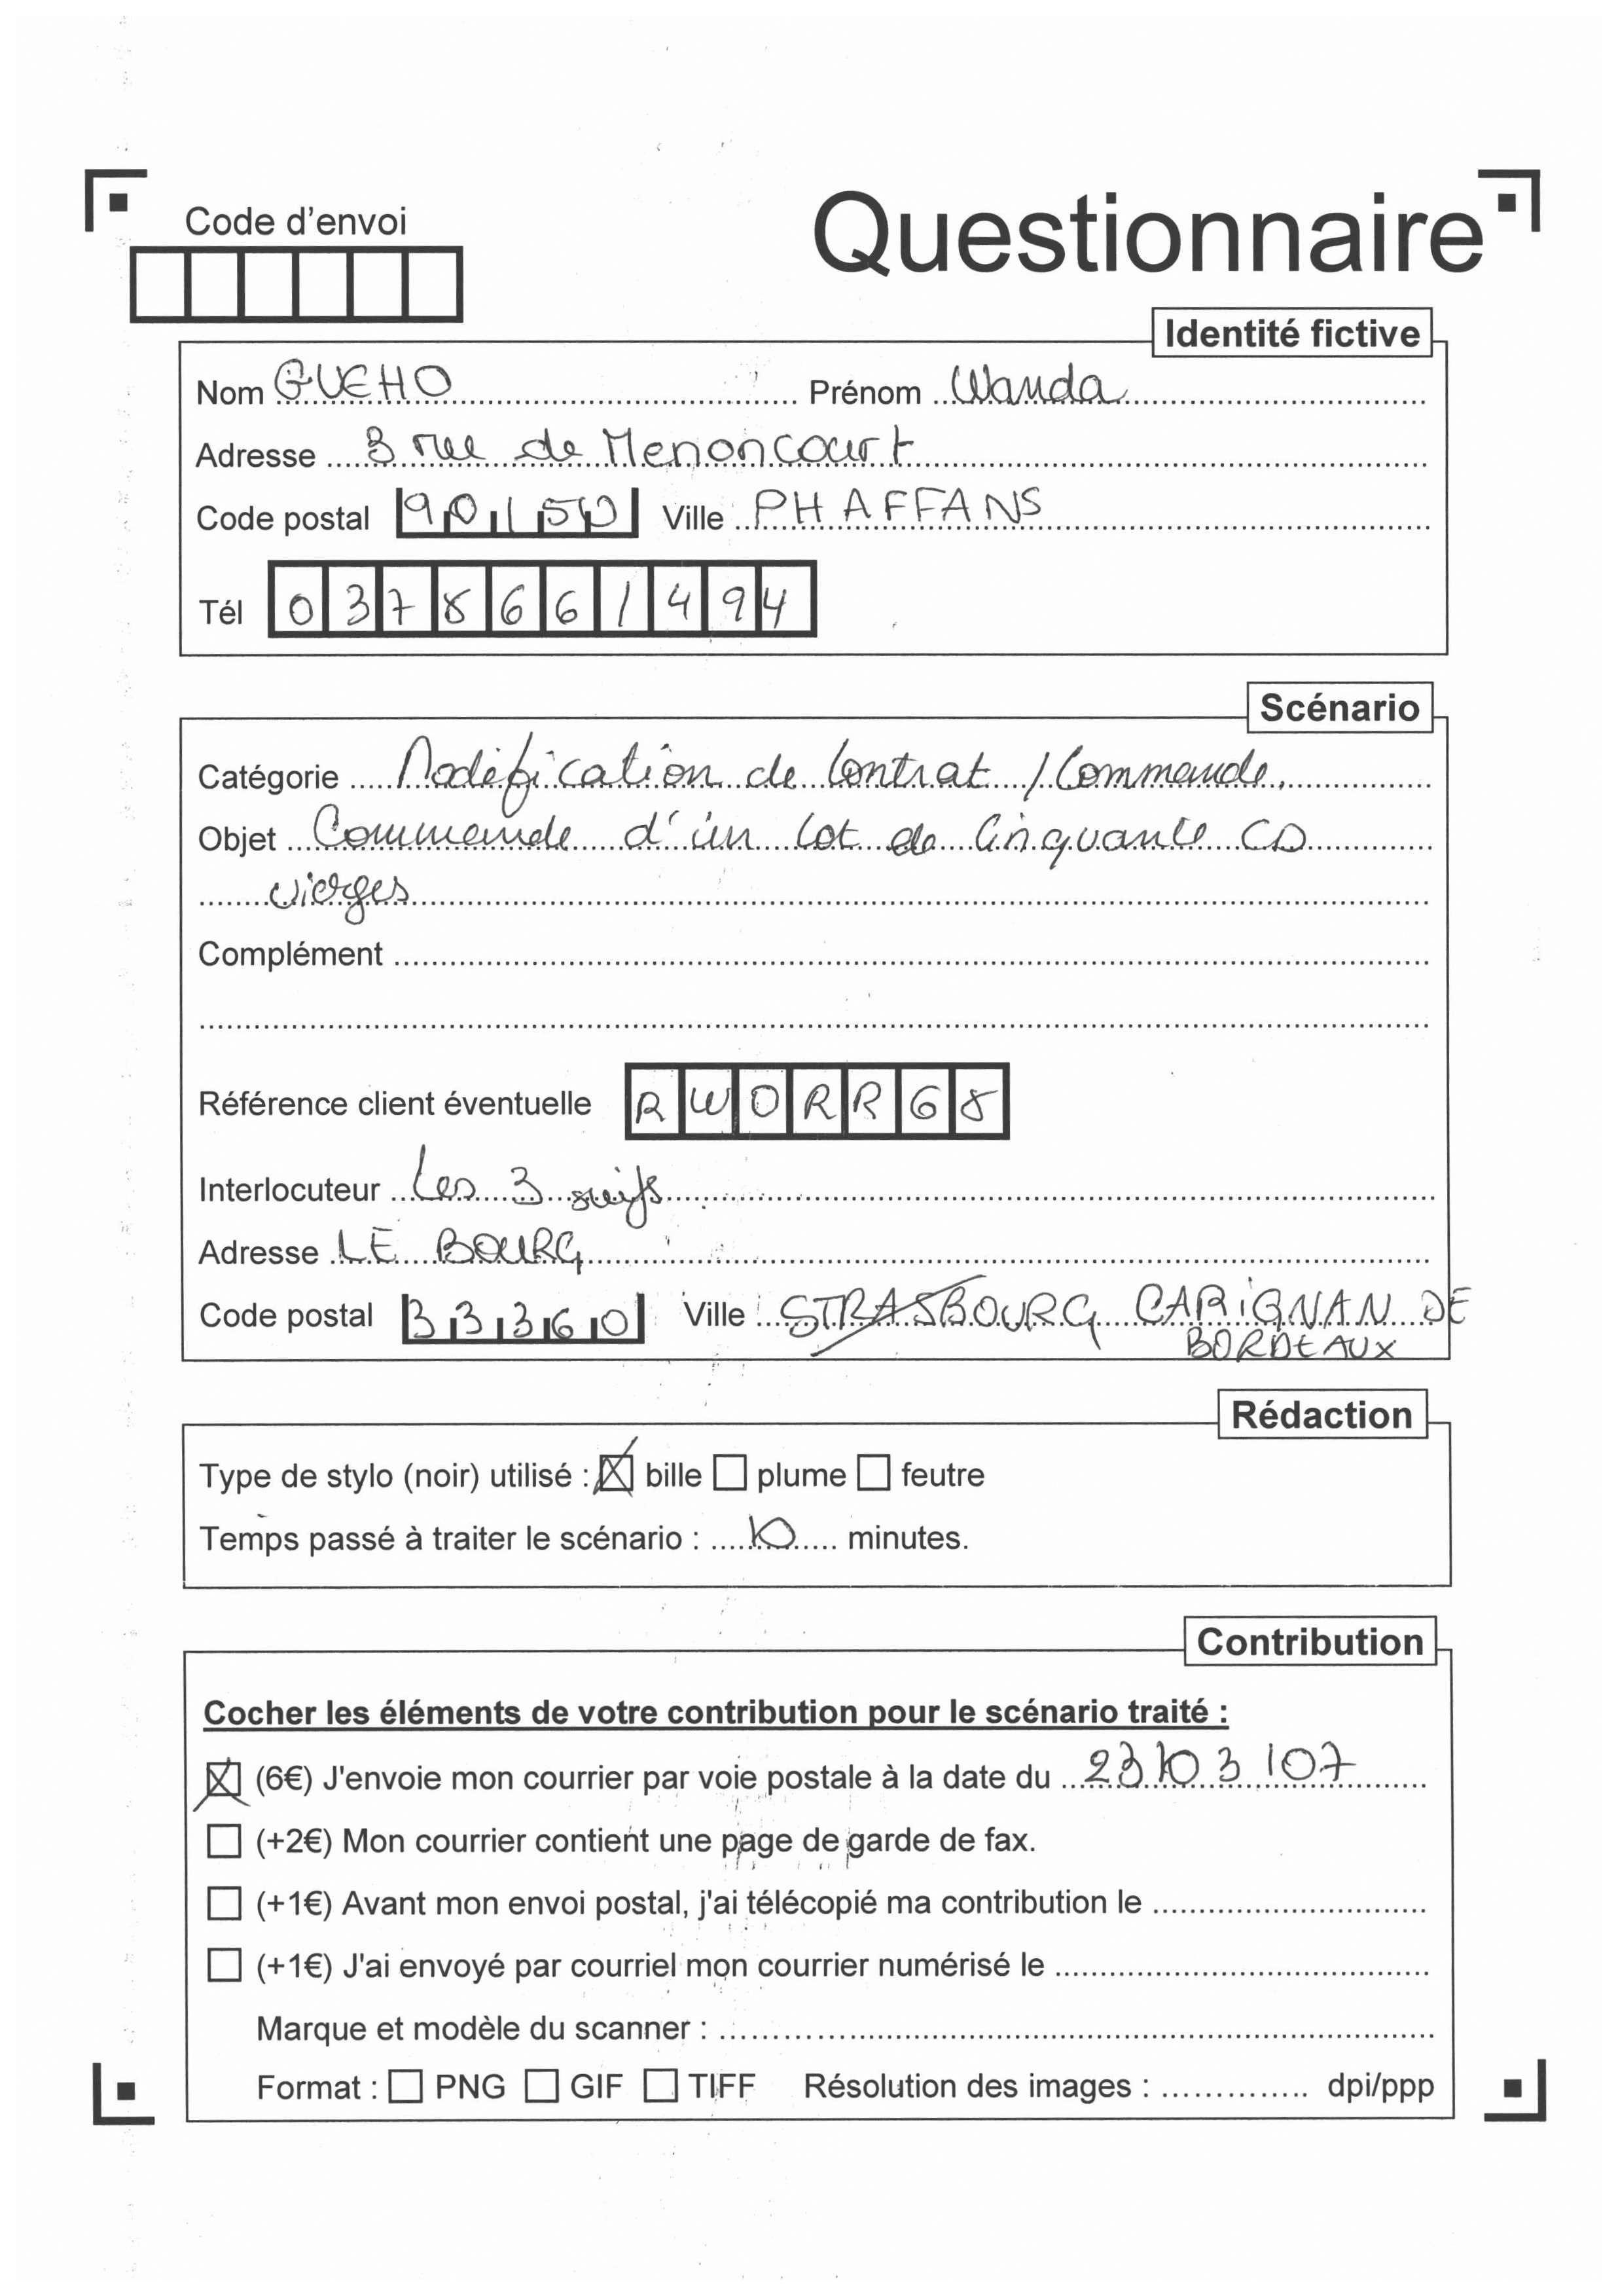 Code d'envoi
Questionnaire
Identité fictive
Nom GUEHO Prénom Wanda
Adresse 3 rue de Menoncourt
Code postal 90150 Ville PHAFFANS
Tél 0378661494
Scénario
Catégorie Modification de Contrat / Commande.
Objet Commande d'un lot de Cinquante CD
vierges
Complément
Référence client éventuelle RWORR68
Interlocuteur Les 3 suifs
Adresse LE BOURG
Code postal 33360 Ville STRASBOURG CARIGNAN DE
BORDEAUX
Rédaction
Type de stylo (noir) utilisé : bille plume feutre
Temps passé à traiter le scénario : 10 minutes.
Contribution
Cocher les éléments de votre contribution pour le scénario traité :
(6€) J'envoie mon courrier par voie postale à la date du 23/03/07
(+2€) Mon courrier contient une page de garde de fax.
(+1€) Avant mon envoi postal, j'ai télécopié ma contribution le
(+1€) J'ai envoyé par courriel mon courrier numérisé le
Marque et modèle du scanner :
Format : PNG GIF TIFF Résolution des images : dpi/ppp